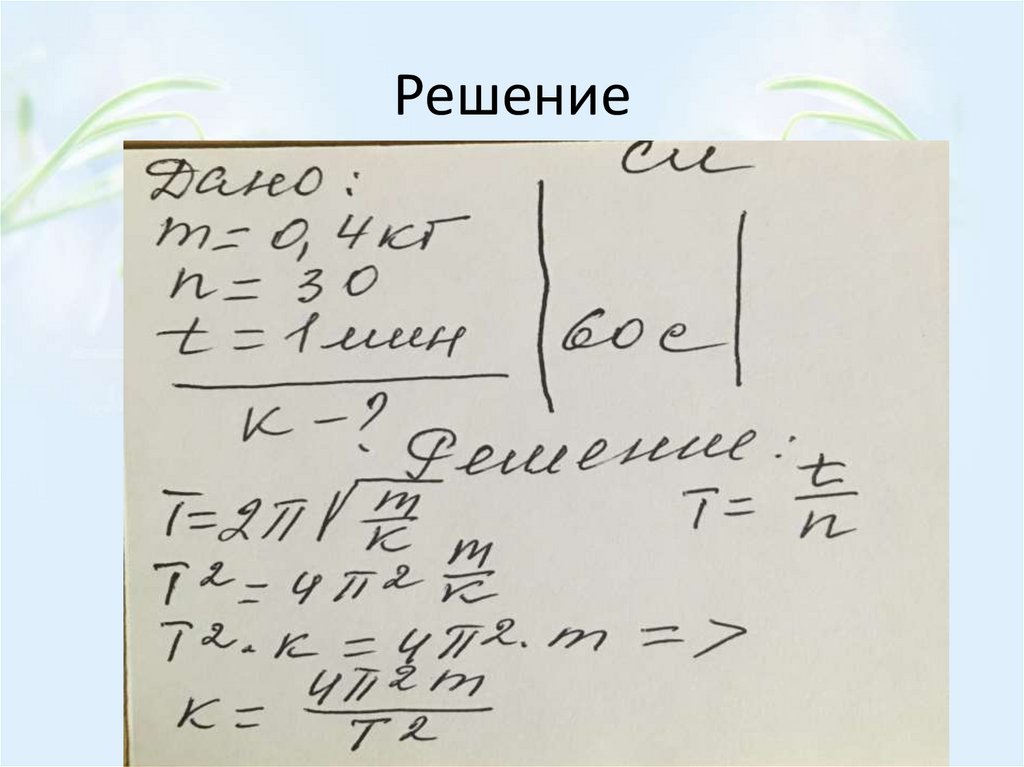 Решение
Дано:
СИ
m = 0,4 кг
n = 30
t = 1 мин
60 с
к - ?
Решение:
T = 2π√(m/к)
T = t/n
T² = 4π² m/к
T² · к = 4π² · m =>
к = 4π²m/T²